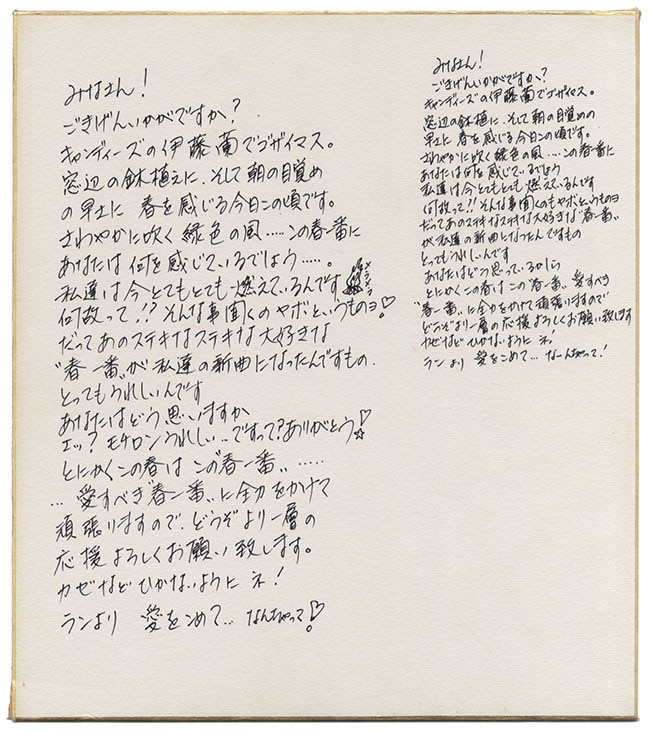 みなさん!
ごきげんいかがですか?
キャンディーズの伊藤蘭でゴザイマス。
窓辺の鉢植えに、そして朝の目覚め
の早さに 春を感じる今日この頃です。
さわやかに吹く緑色の風……この春一番に
あなたは何を感じているでしょう……。
私達は今とてもとても燃えているんです
何故って!?そんな事聞くのヤボというものヨ!
だってあのステキなステキな大好きな
“春一番”が私達の新曲になったんですもの.
とってもうれしいんです
あなたはどう思いますか
エッ?モチロンうれしい..ですって?ありがとう!
とにかくこの春は この“春一番”……
…愛すべき“春一番”に全力をかけて
頑張りますので、どうぞより一層の
応援よろしくお願い致します。
カゼなどひかないようにネ!
ランより 愛をこめて… なんちゃって!
みなさん!
ごきげんいかがですか?
キャンディーズの伊藤蘭でゴザイマス。
窓辺の鉢植に、そして朝の目覚めの
早さに 春を感じる今日この頃です。
さわやかに吹く緑色の風‥‥この春一番に
あなたは何を感じているでしょう
私達は今とてもとても燃えているんです
何故って!?そんな事聞くのもヤボというものヨ
だってあのステキなステキな大好きな“春一番”
が私達の新曲になったんですもの
とってもうれしいんです
あなたはどう思っているかしら
とにかくこの春はこの“春一番”愛すべき
“春一番”に全力をかけて頑張りますので
どうぞより一層の応援よろしくお願い致します
カゼなどひかないように ネ
ランより 愛をこめて… なーんちゃって!